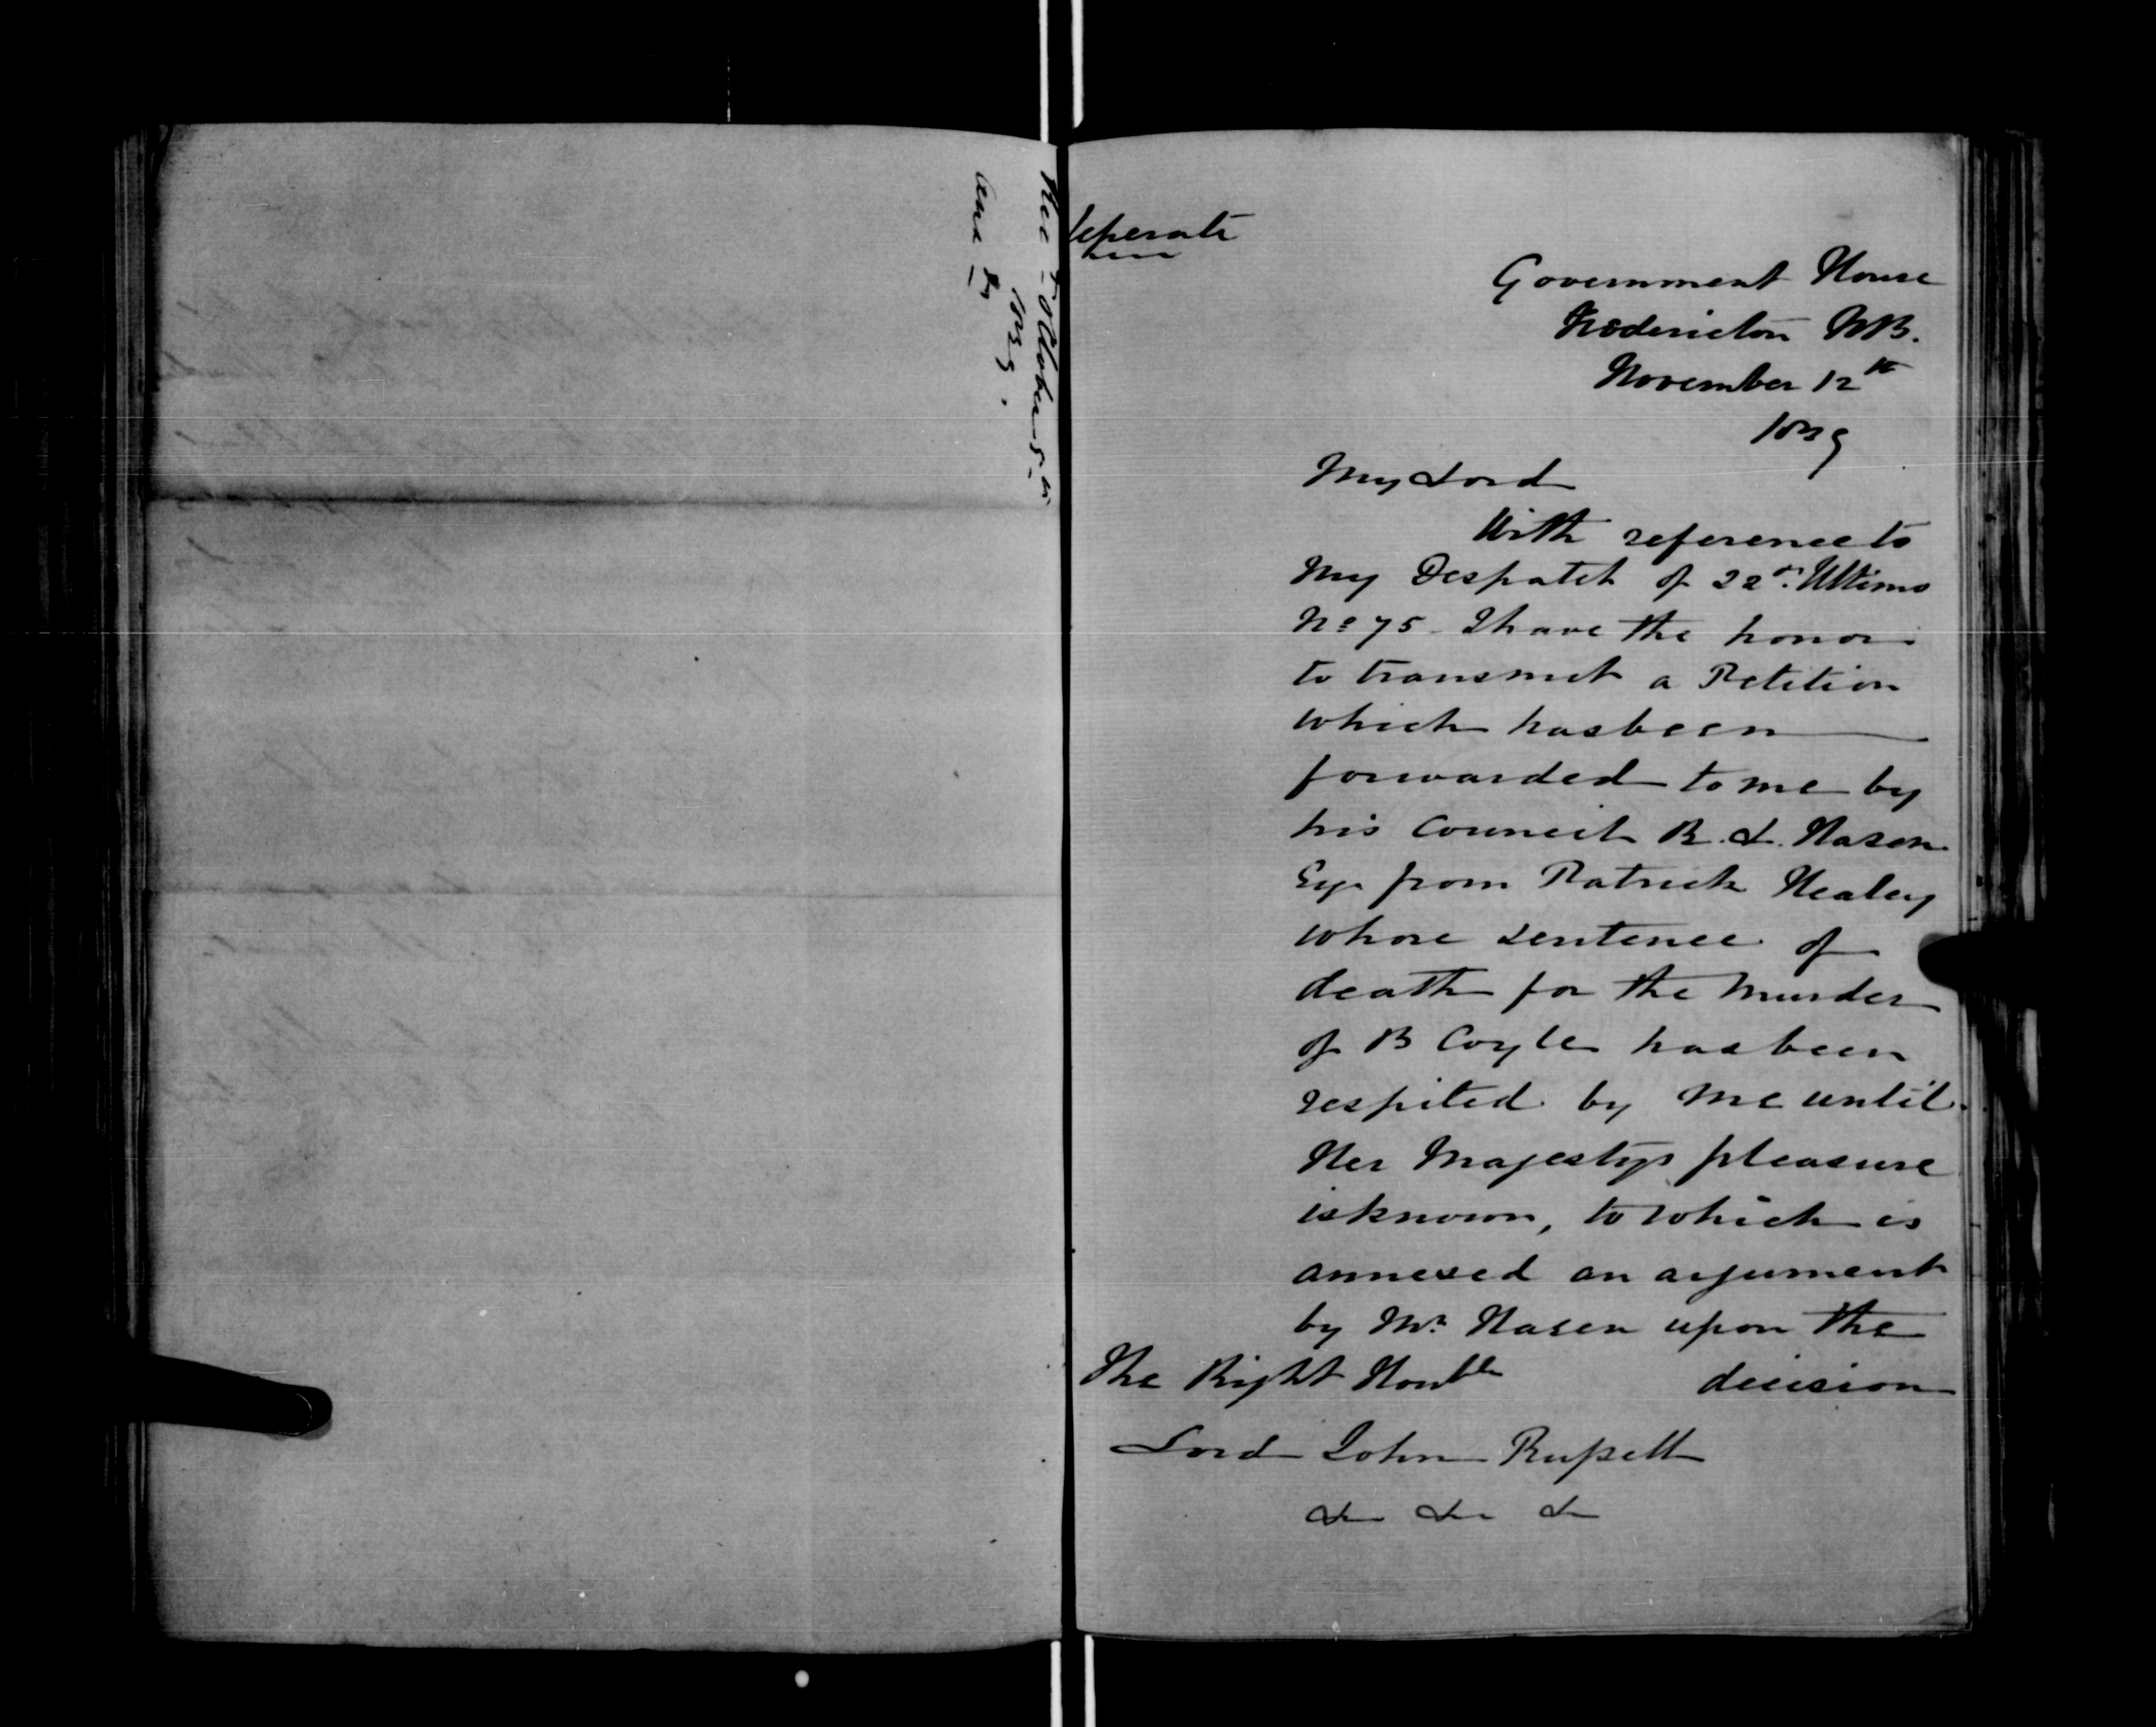 Rec'd October 5th
1839.
Ansd
Seperate
Government House
Fredericton NB.
November 12th
1839
My Lord
With reference to
My Despatch of 22d. Ultimo
No 75 I have the honor
to transmit a Petition
which has been
forwarded to me by
his Council B. L. Hasen
Esqr from Patrick Healey
whose sentence of
death for the Murder
of B Coyle has been
respited by me until
Her Majestys pleasure
is known, to which is
annexed an argument
by Mr. Hasen upon the
decision
The Right Honble
Lord John Russell
&c &c &c